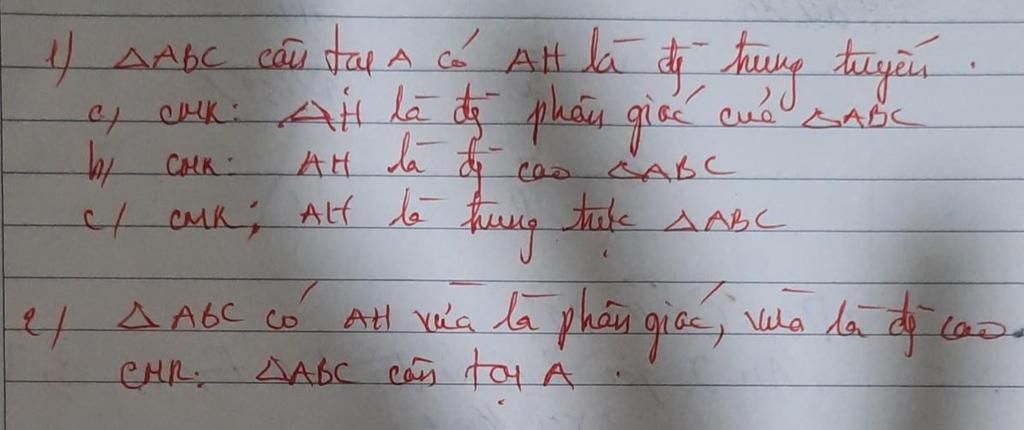 1) △ABC cân tại A có AH là đg trung tuyến.
a) CMR: AH là đg phân giác của △ABC
b) CMR: AH là đg cao △ABC
c) CMR: AH là trung trực △ABC
2) △ABC có AH vừa là phân giác, vừa là đg cao.
CMR: △ABC cân tại A.